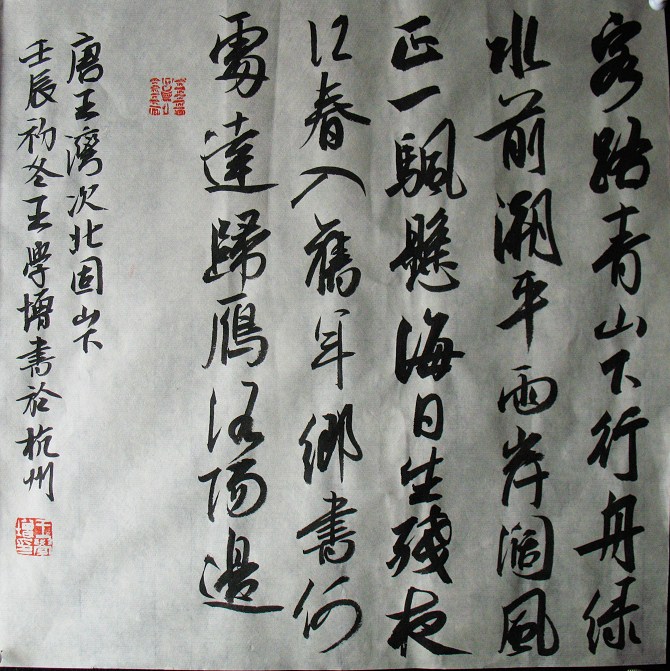 客路青山下行舟绿
水前潮平兩岸濶風
正一颿懸海日生殘夜
江春入舊年鄉書何
處達歸鴈洛陽邊
唐王灣次北固山下
壬辰初冬王學博書於杭州